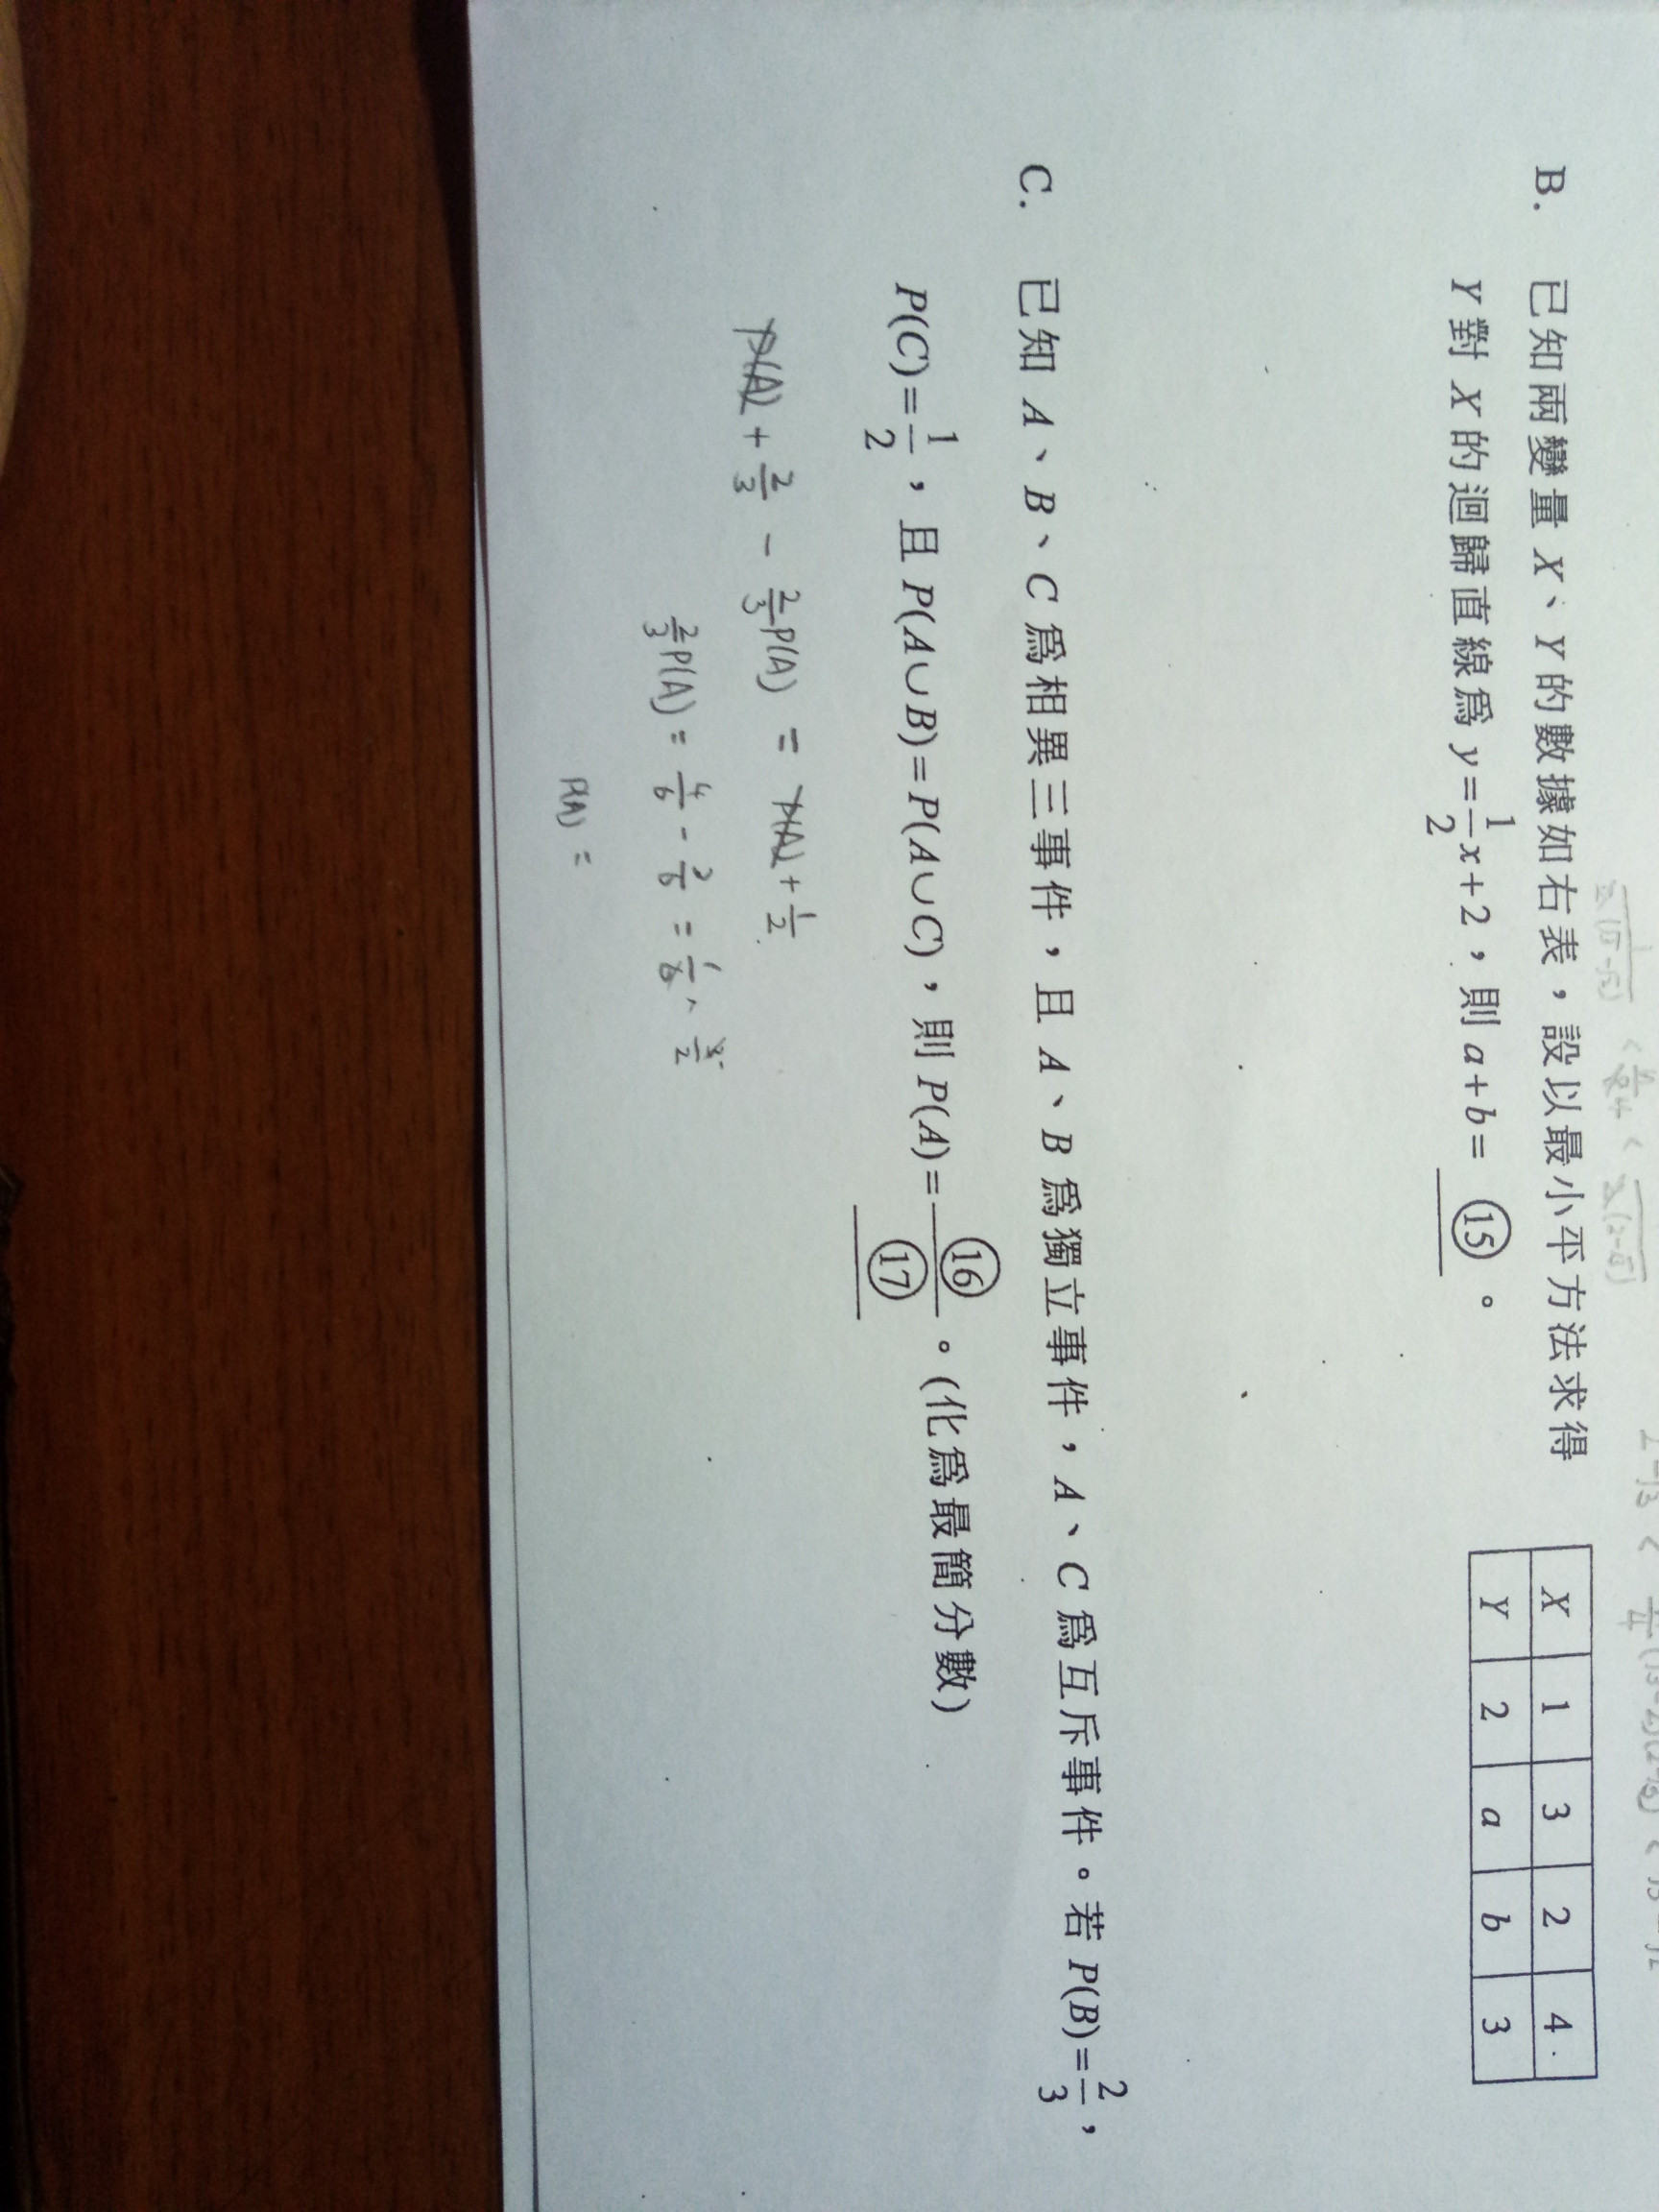 B. 已知兩變量 X、Y 的數據如右表，設以最小平方法求得
Y 對 X 的迴歸直線爲 y=1/2x+2，則 a+b= ⑮ 。
X 1 3 2 4
Y 2 a b 3
C. 已知 A、B、C 爲相異三事件，且 A、B 爲獨立事件，A、C 爲互斥事件。若 P(B)=2/3，
P(C)=1/2，且 P(A∪B)=P(A∪C)，則 P(A)=⑯/⑰。(化爲最簡分數)
P(A) + 2/3 - 2/3P(A) = P(A) + 1/2
2/3P(A) = 4/6 - 3/6 = 1/6 × 3/2
P(A) =